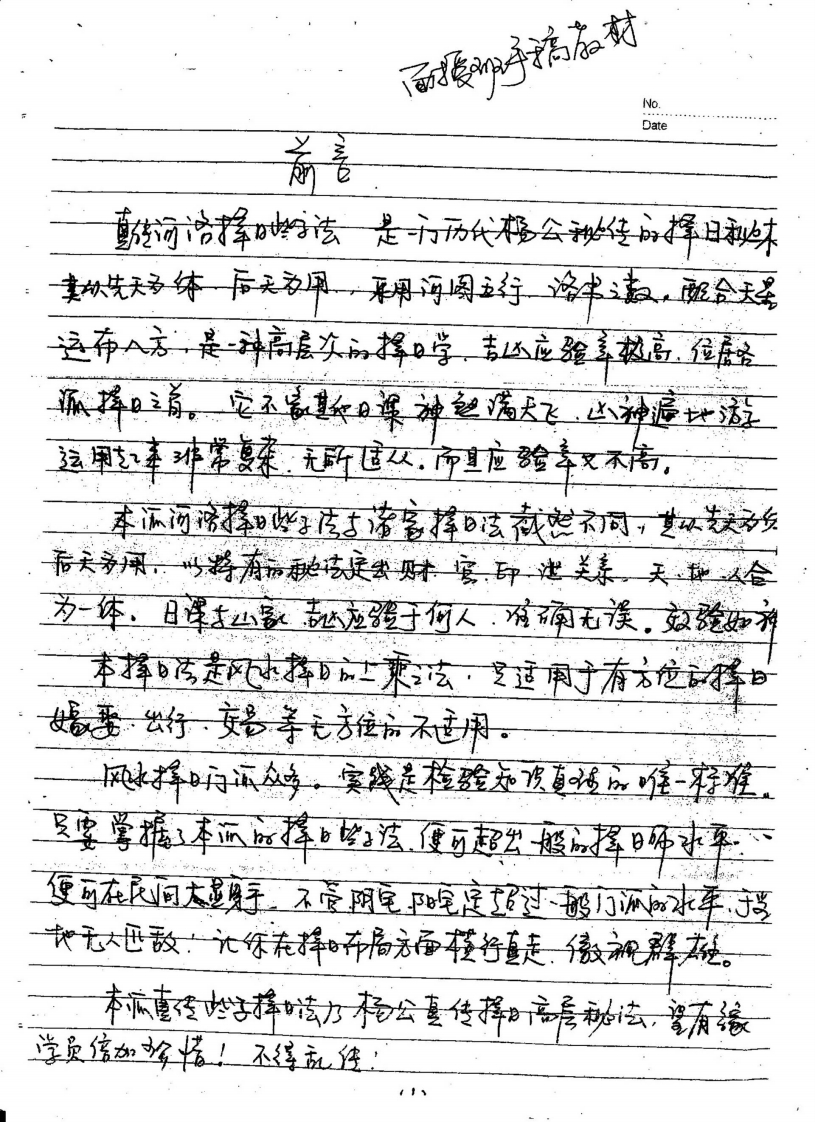 面授班手稿教材
No.
Date
前言
真传河洛择日些子法 是一门历代杨公秘传的择日秘术
其以先天为体 后天为用，采用河图五行 洛书之数。配合天星
运布八方，是一种高层次的择日学，吉凶应验率极高，位居各
派择日之首。它不象其它日课神煞满天飞，凶神遍地游
运用起来非常复杂，无所适从。而且应验率又不高。
本派河洛择日些子法与诸家择日法截然不同，其以先天为体
后天为用，以特有的秘法定出财、官、印、泄关系，天、地、人合
为一体。日课与山家 吉凶应验于何人，准确无误。效验如神
本择日法是风水择日的上乘之法，只适用于有方位的择日
嫁娶、出行、交易等无方位的不适用。
风水择日门派众多。实践是检验知识真谛的唯一标准。
只要掌握了本派的择日些子法，便可超出一般的择日师水平，
便可在民间大显身手，不管阴宅、阳宅定超过一般门派的水平，
地无人匹敌！让你在择日布局方面横行直走，傲视群雄。
本派真传些子择日法乃杨公真传择日高层秘法，望有缘
学员倍加珍惜！不得乱传！
(1)